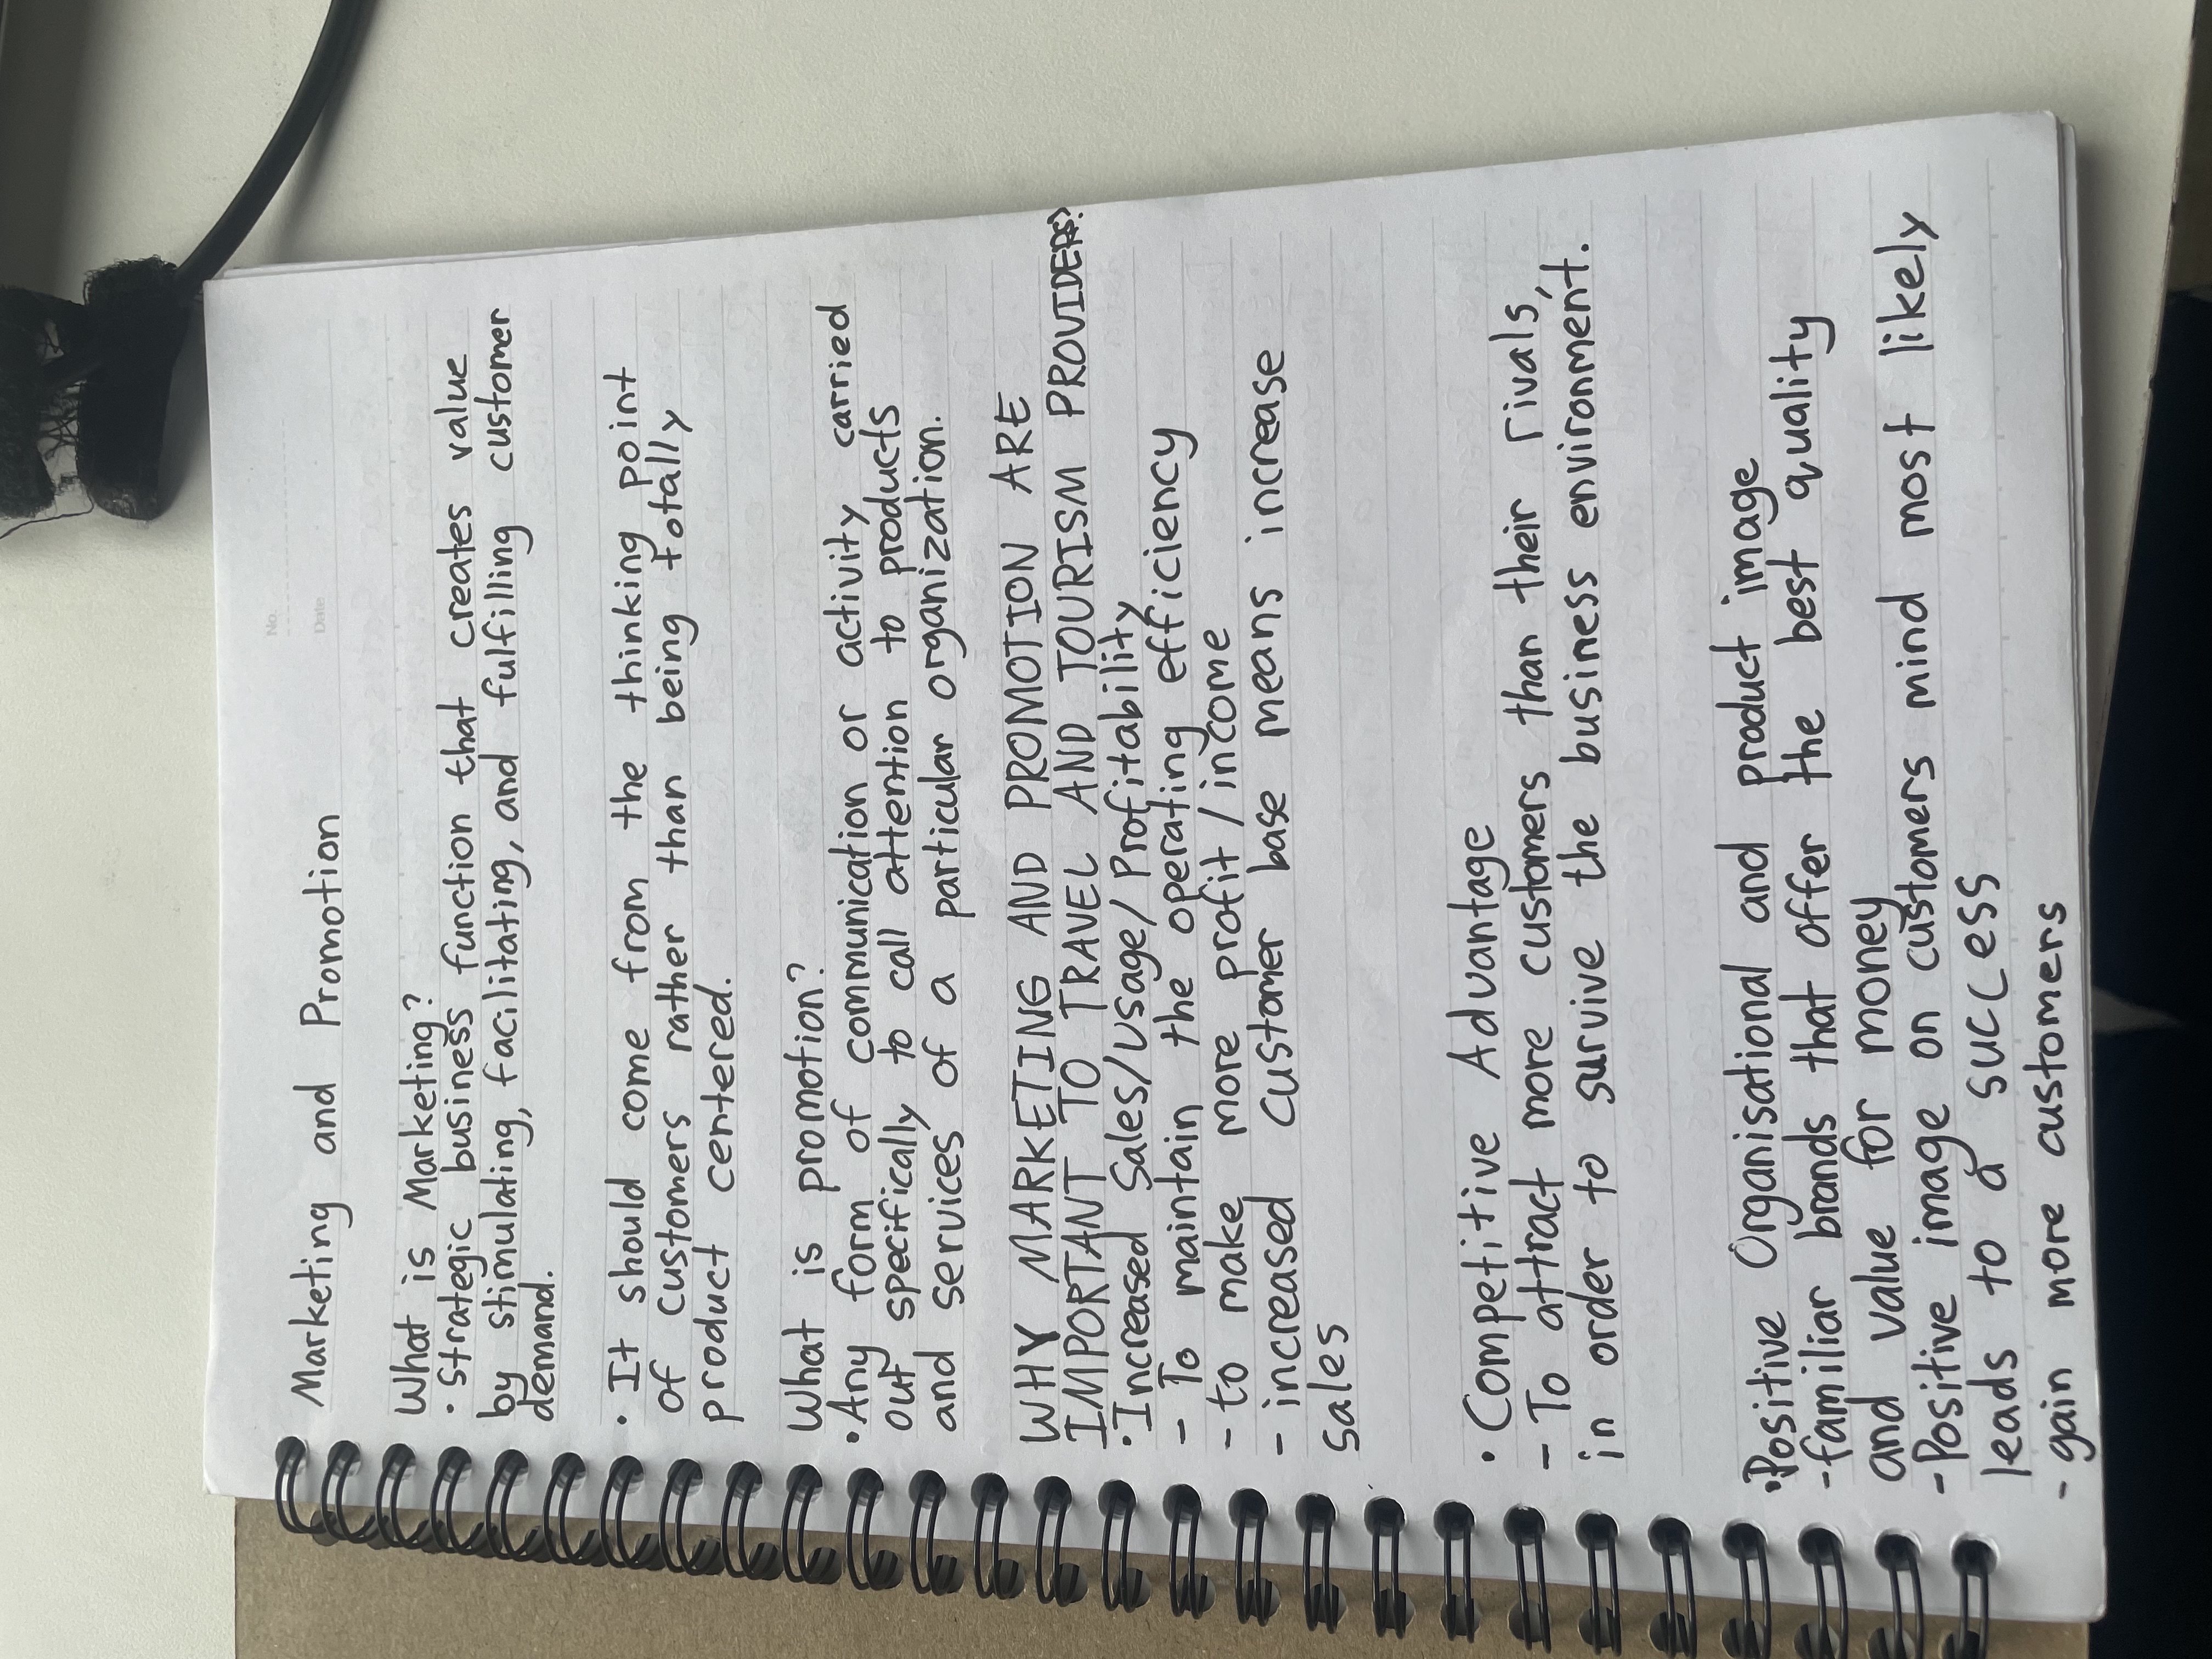 No.
Date
Marketing and Promotion
What is Marketing?
• Strategic business function that creates value
by stimulating, facilitating, and fulfilling customer
demand.
• It should come from the thinking point
of customers rather than being totally
product centered.
What is promotion?
• Any form of communication or activity carried
out specifically to call attention to products
and services of a particular organization.
WHY MARKETING AND PROMOTION ARE
IMPORTANT TO TRAVEL AND TOURISM PROVIDERS?
• Increased Sales/Usage/Profitability
- To maintain the operating efficiency
- to make more profit/income
- increased customer base means increase
sales
• Competitive Advantage
- To attract more customers than their rivals,
in order to survive the business environment.
• Positive Organisational and product image
- familiar brands that offer the best quality
and value for money
- Positive image on customers mind most likely
leads to a success
- gain more customers